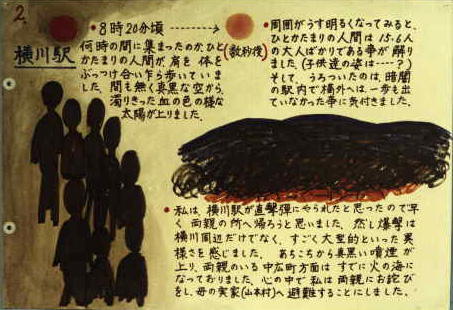 2.
横川駅
●8時20分頃
何時の間に集まったのか、ひと
かたまりの人間が、肩を 体を
ぶっつけ合い乍ら歩いていま
した。間も無く真黒な空から、
濁りきった血の色の様な
太陽が上りました。
(数秒後)
●周囲がうす明るくなってみると、
ひとかたまりの人間は 15.6人
の大人ばかりである事が解り
ました。(子供達の姿は----?)
そして、うろついたのは、暗闇
の駅内で構外へは、一歩も出
ていなかった事に気付きました。
●私は、横川駅が直撃弾にやられたと思ったので早
く両親の所へ帰ろうと思いました。然し爆撃は
横川周辺だけでなく、すごく大型的といった異
様さを感じました。 あちこちから真黒い噴煙が
上り、両親のいる中広町方面は すでに火の海に
なっておりました。心の中で 私は両親にお詫び
をし、母の実家(山本村)へ避難することにしました。